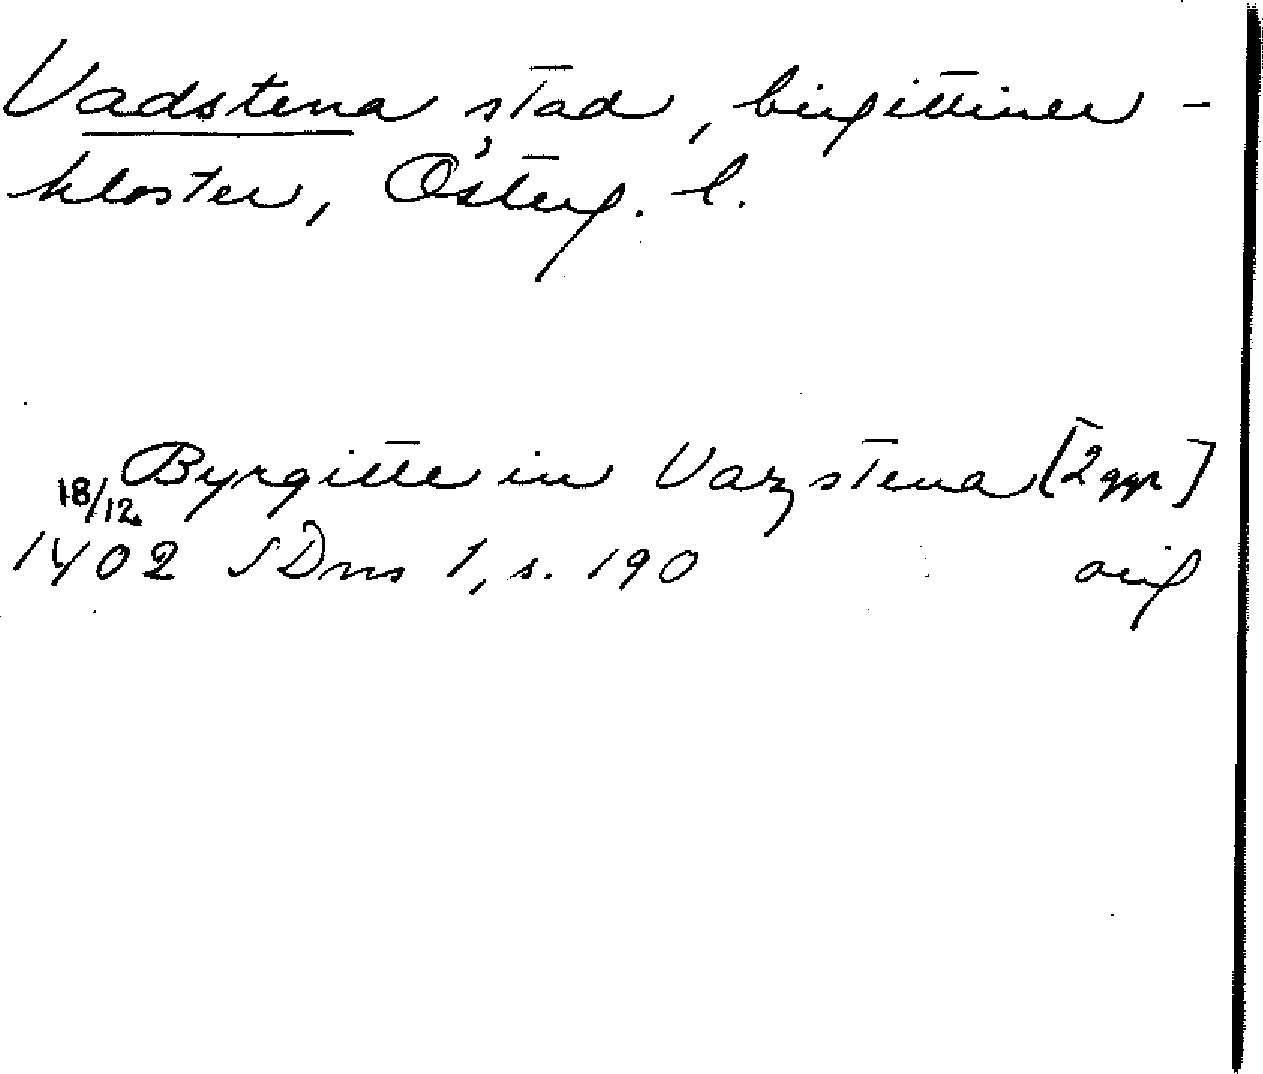 Vadstena stad, birgittiner-
kloster, Österg. l.
Byrgitte in Vazstena [2 ggr]
18/12.
1402 SDns 1, s. 190 orig